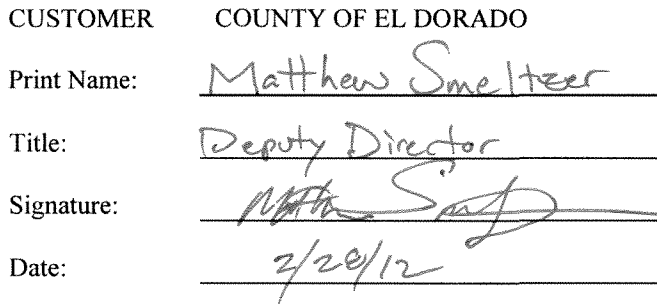 CUSTOMER COUNTY OF EL DORADO
Print Name: Matthew Smeltzer
Title: Deputy Director
Signature: Matthew Smeltzer
Date: 2/28/12